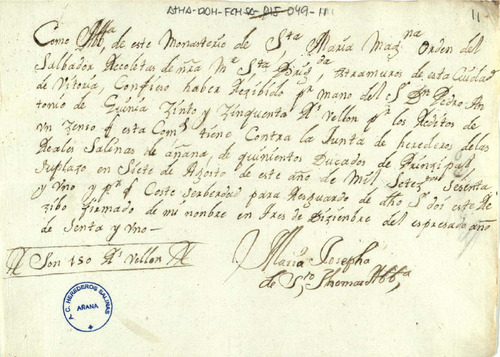 ATHA-DOH-FCH-
11
Como Abb.a de este Monasterio de S.ta Maria Mag.na Orden del
Salbador Recoletas de nra M.e S.ta Brig.da extramuros de esta Ciudad
de Vitoria, Confieso haber Rezibido p.r mano del S.r Dn Pedro An
tonio de Guinia Zinto y Zinquenta R.s Vellon p.r los Reditos de
vn Zenso q esta Com.d tiene Contra la Junta de herederos de las
Reales Salinas de añana, de quinientos Ducados de Prinzipal
su plazo en Siete de Agosto de este año de Mil Sete.s Sesenta
y Uno y p.a q Coste serbendo para Resguardo de dho S.r doi este Re
zibo firmado de mi nombre en tres de Diziembre del espresado año
de Senta y uno
Son 150 R.s Vellon
Maria Josepha
de S.to Thomas Abb.a
A.C. HEREDEROS SALINAS
AÑANA